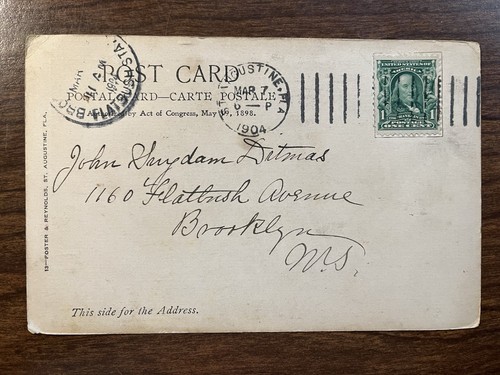 POST CARD
POSTAL CARD—CARTE POSTALE
Authorized by Act of Congress, May 19, 1898.
ST. AUGUSTINE, FLA.
MAR 7
6 - P
1904
FLATBUSH STA.
MAR
11 A M
UNITED STATES OF AMERICA
1 1
John Suydam Ditmas
1160 Flatbush Avenue
Brooklyn
13—FOSTER & REYNOLDS, ST. AUGUSTINE, FLA.
This side for the Address.